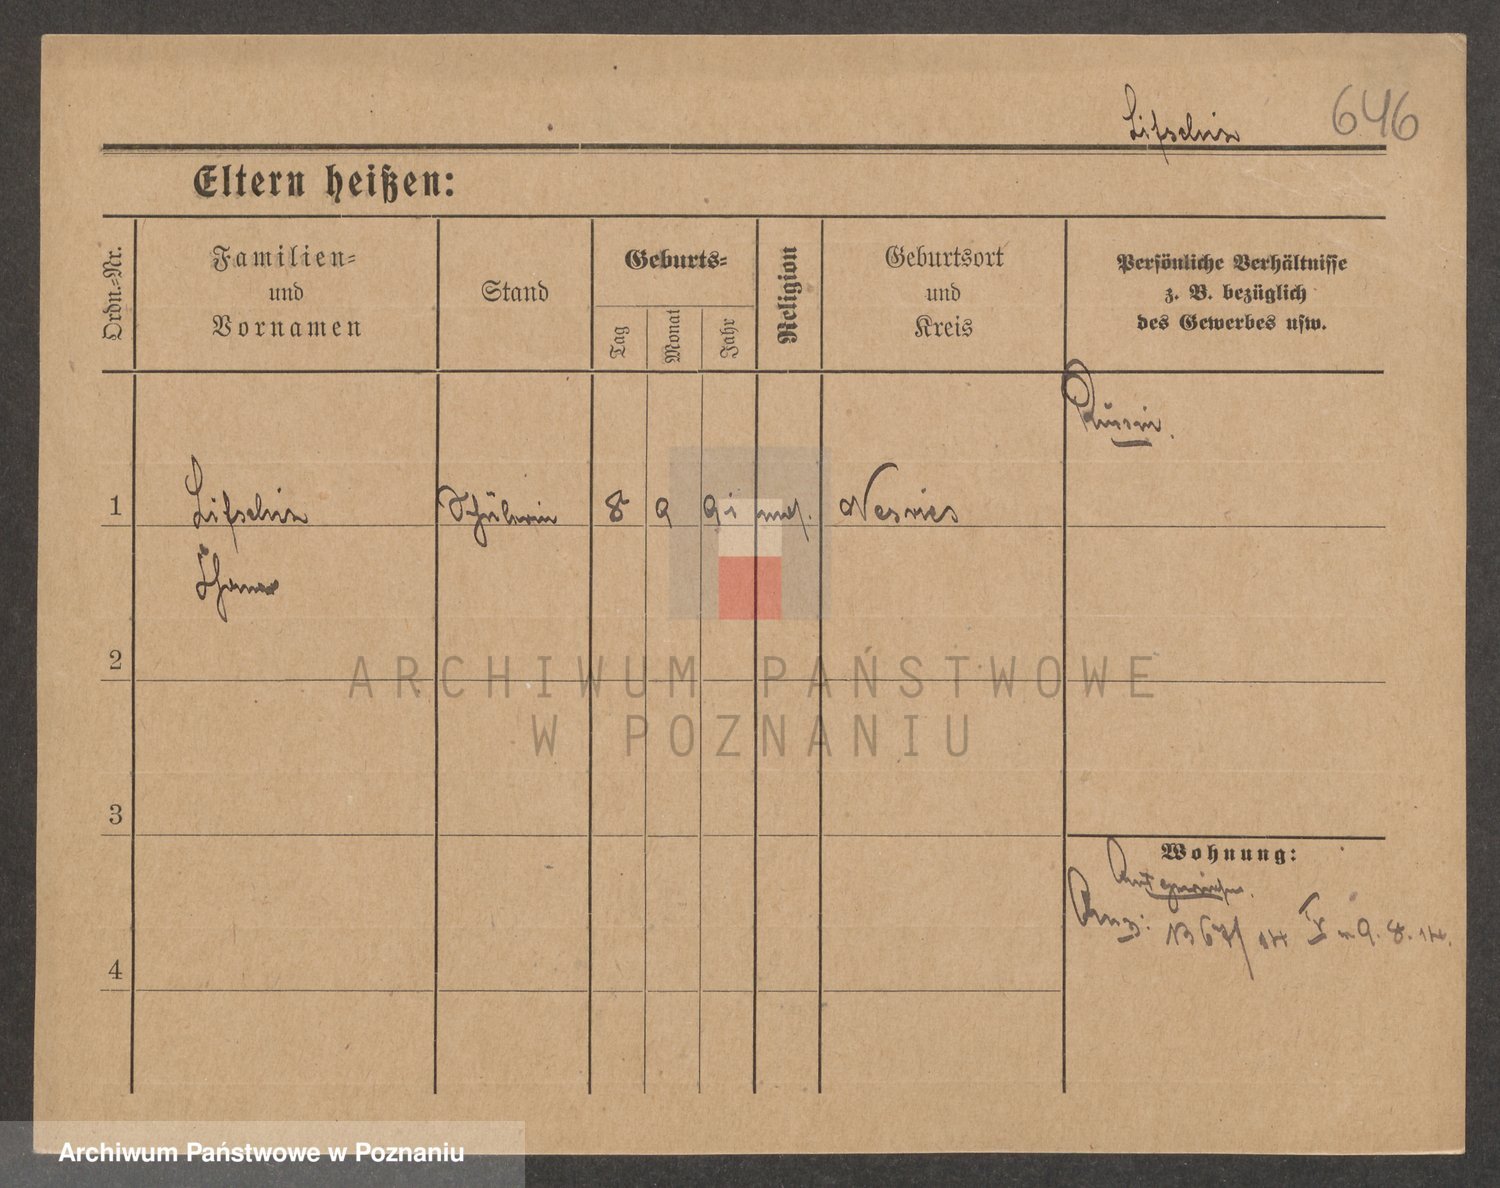 646
Lifschiz
Eltern heißen:
Ordn.-Nr.
Familien-
und
Vornamen
Stand
Geburts-
Tag
Monat
Jahr
Religion
Geburtsort
und
Kreis
Persönliche Verhältnisse
z. B. bezüglich
des Gewerbes usw.
Russin.
1
Lifschiz
Schülerin
8
9
91
mos.
2
3
4
Wohnung:
ARCHIWUM PAŃSTWOWE
W POZNANIU
Archiwum Państwowe w Poznaniu